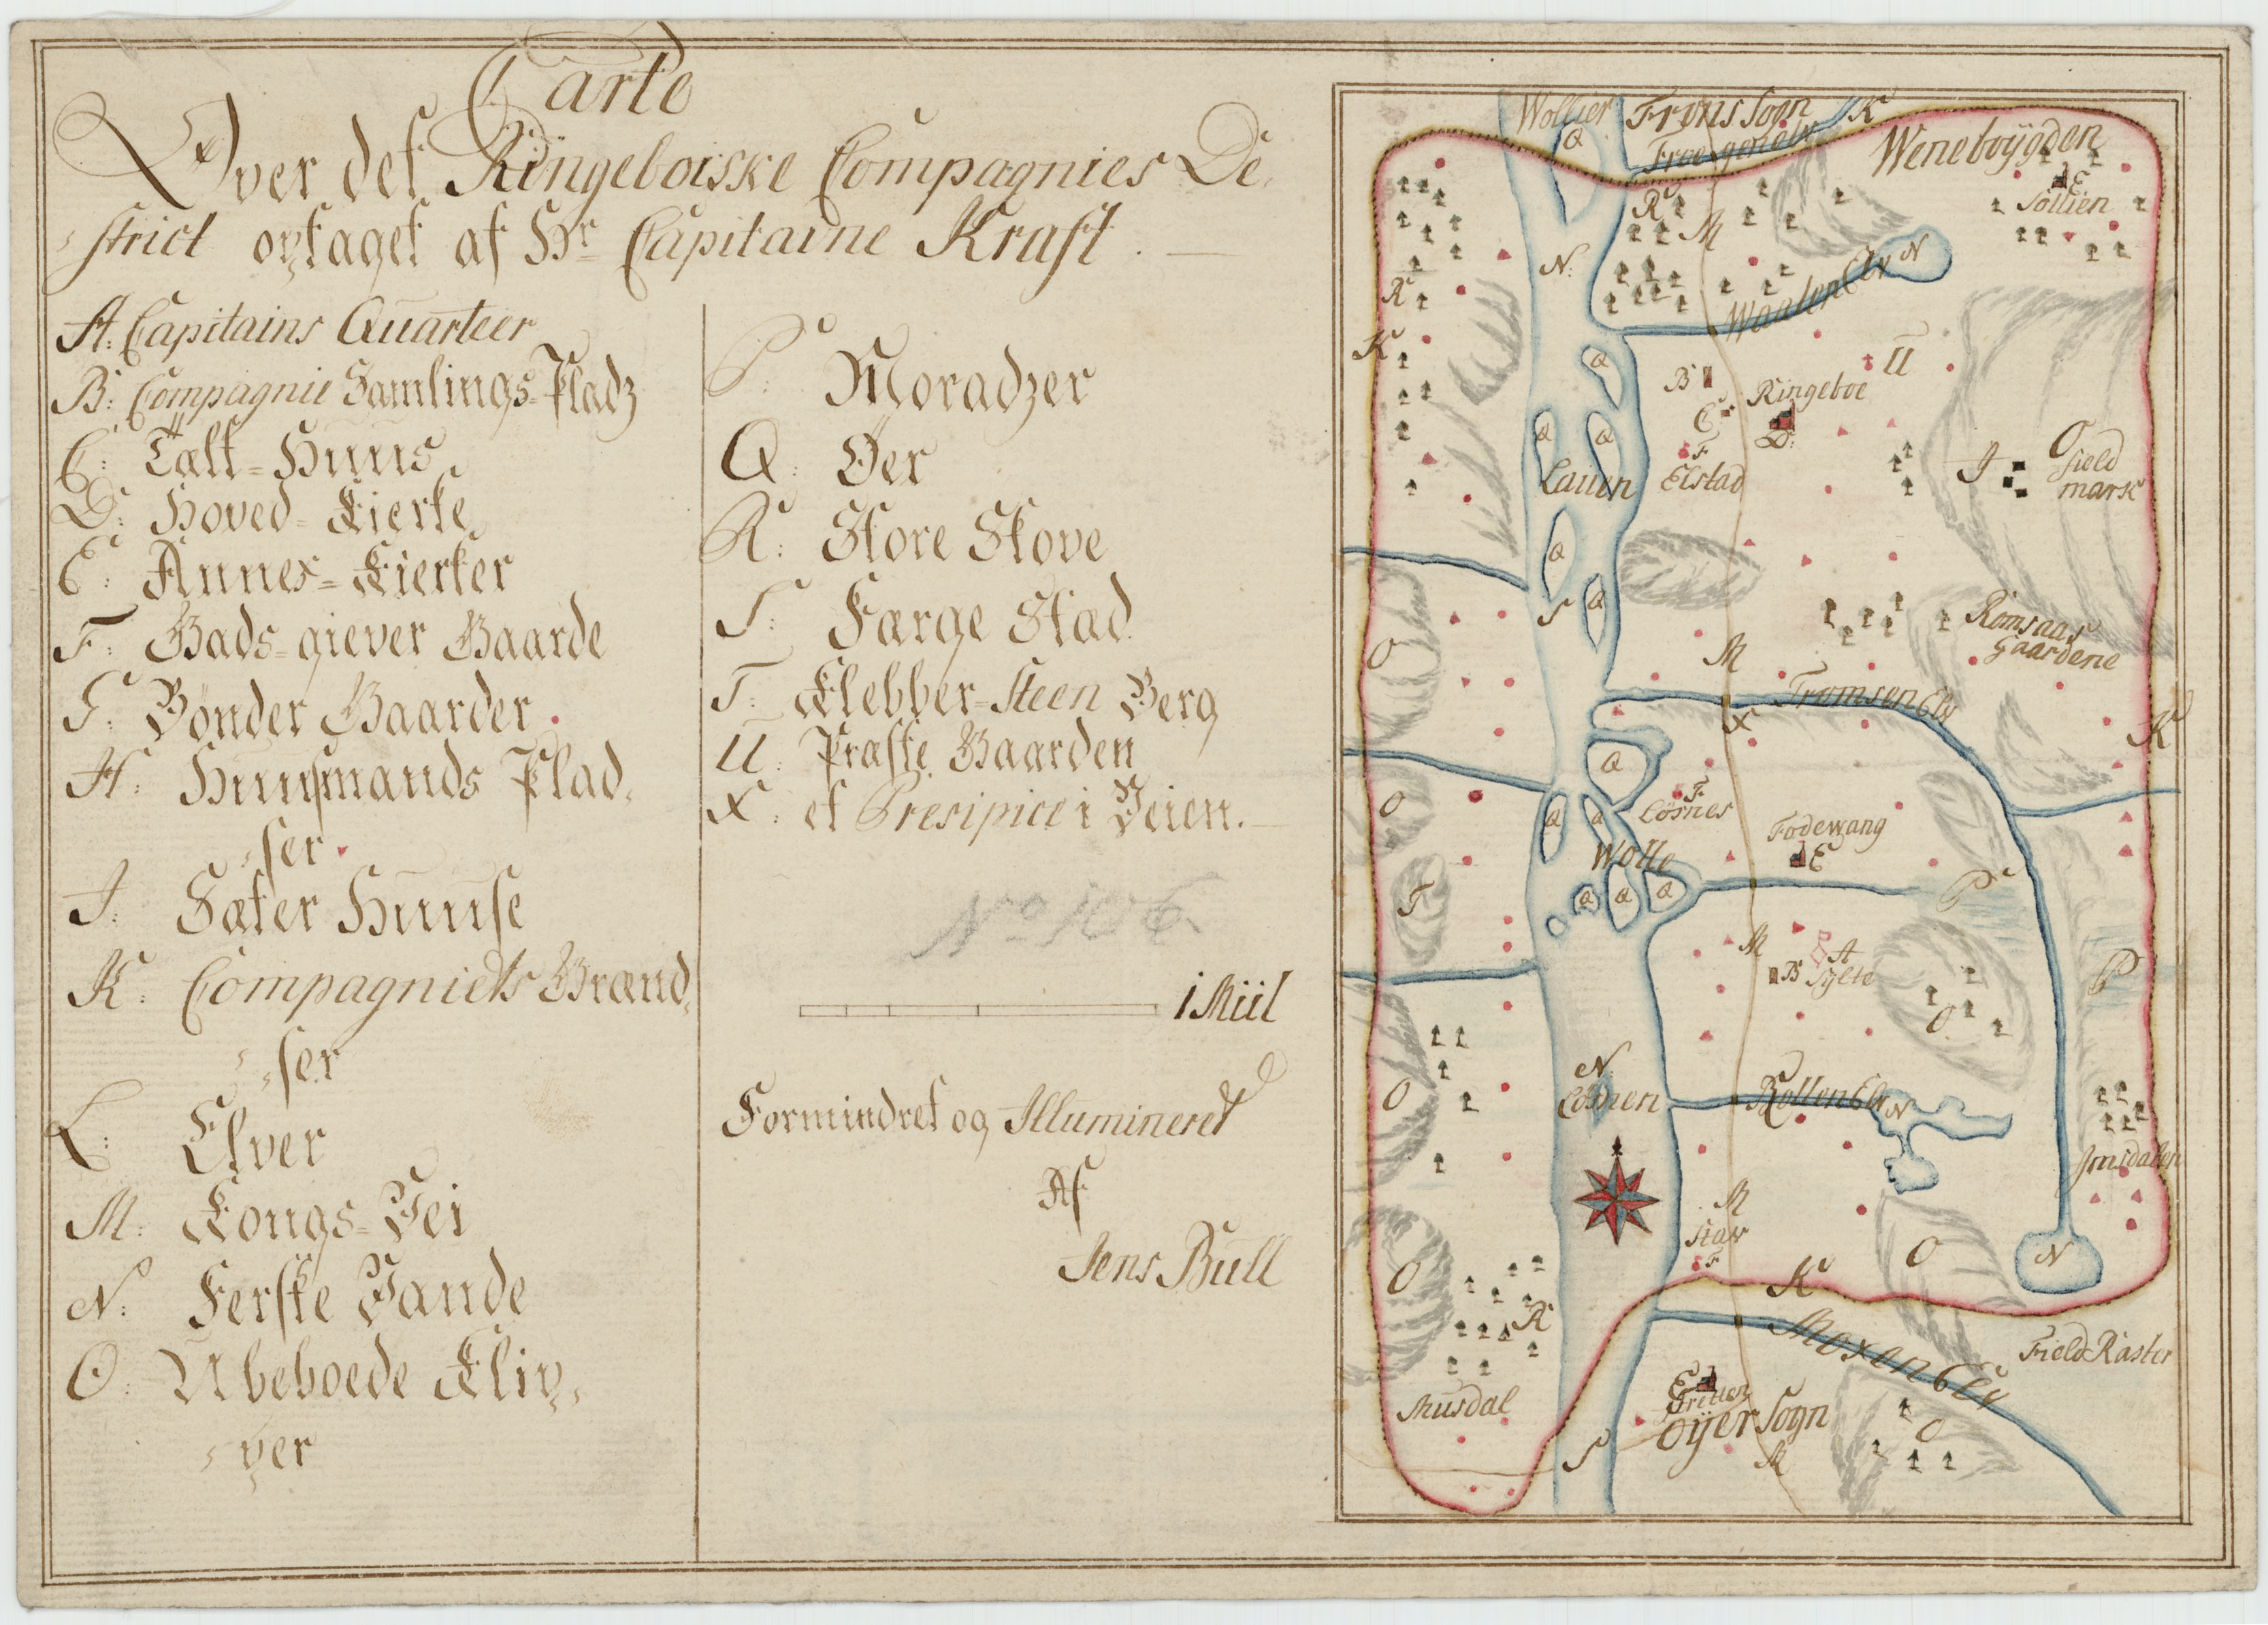 Carte
Over det Ringeboiske Compagnies De,
,strict optaget af Hr Capitaine Kraft.
A: Capitains Quarteer
B: Compagnie Samlings-Pladz
C: Tält-Huus
D: Hoved-Kierke
E: Annex-Kierker
F: Gads-giever Gaarde
G: Bönder Gaarder
H: Huusmands Plad,
,ser
I: Sæter Huuse
K: Compagniets Grænd,
,ser
L: Elver
M: Kongs-Vei
N: Ferske Vande
O: Ubeboede Klip,
,per
P: Moradzer
Q: Öer
R: Store Skove
S: Færge Stad
T: Klebber-Steen Berg
U: Præste Gaarden
X: et Presipice i Veien.
No 106
1 Miil
Formindret og Illumineret
Af
Jens Bull
Frons Sogn
K
Q
Weneboÿgden
E
Sollien
R
M
N:
N
Waalen Elv
R
K
U
Q
B
Ringeboe
C
D:
Q
Q
F
Lauen
Elstad
I
O
field
mark
Q
Q
S
Romsaas
Gaardene
O
M
Tromsen Elv
X
K
Q
O
F
Lösnes
Q
Q
Fodewang
E
Wolle
Q
Q
Q
P
T
M
A
B
Sylte
P
O
N
Lösnen
O
Rollen Elv
N
Imsdalen
M
Stav
F
O
O
N
K
R
Moxen Elv
Field Raster
Musdal
E
Öÿer Sogn
O
S
M